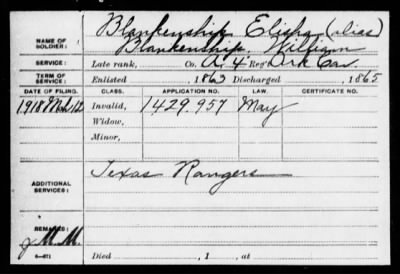 NAME OF SOLDIER: Blankenship, Elisha (alias)
Blankenship, William
SERVICE: Late rank, Co. A, 4 Reg't Ark Cav.
TERM OF SERVICE: Enlisted 1863 Discharged , 1865
DATE OF FILING. CLASS. APPLICATION NO. LAW. CERTIFICATE NO.
1918 Mch 12 Invalid, 1429.957 May
Widow,
Minor,
ADDITIONAL SERVICES: Texas Rangers
REMARKS:
J.M.M.
Died , 1 , at